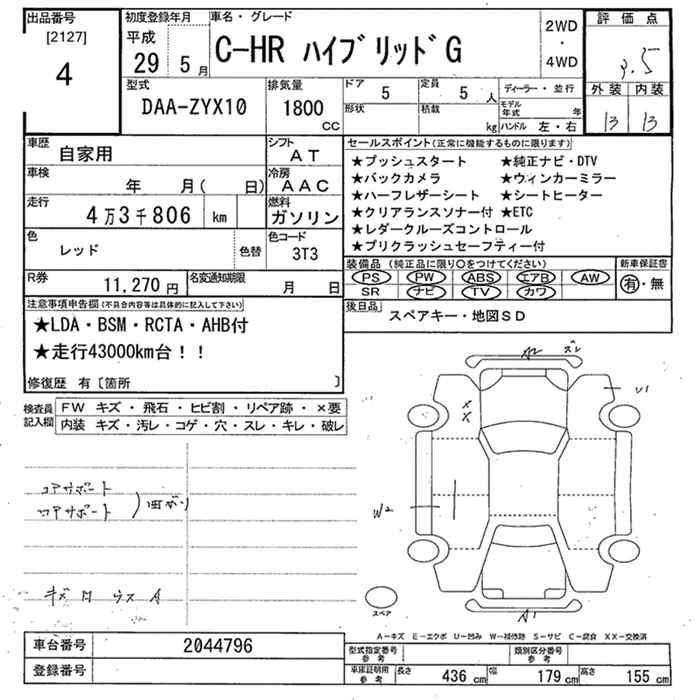 出品番号
[2127]
4
初度登録年月
平成
29 5月
車名・グレード
C-HR ハイブリッドG
2WD
・
4WD
評価点
3.5
外装 内装
B B
型式
DAA-ZYX10
排気量
1800
CC
ドア 5
定員 5 人
形状
積載 kg
ディーラー・並行
モデル年式 年
ハンドル 左・右
車歴
自家用
車検
年 月( 日)
走行
4万3千806 km
色
レッド
色替
シフト
AT
冷房
AAC
燃料
ガソリン
色コード
3T3
R券
11,270円
名変通知期限
月 日
セールスポイント(正常に機能するものに限ります)
★プッシュスタート ★純正ナビ・DTV
★バックカメラ ★ウィンカーミラー
★ハーフレザーシート ★シートヒーター
★クリアランスソナー付 ★ETC
★レダークルーズコントロール
★プリクラッシュセーフティー付
装備品(純正品に限り○をつけてください)
PS PW ABS エアB AW
SR ナビ TV カワ
新車保証書
有・無
後日品
スペアキー・地図SD
注意事項申告欄(不具合内容等は具体的に記入して下さい)
★LDA・BSM・RCTA・AHB付
★走行43000km台!!
修復歴 有〔箇所 〕
検査員記入欄
FW キズ・飛石・ヒビ割・リペア跡・×要
内装 キズ・汚レ・コゲ・穴・スレ・キレ・破レ
コアサポート
ロアサポート
曲がり
A2 ズレ
U1
W2
A1
スペア
A-キズ E-エクボ U-凹み W-補修跡 S-サビ C-腐食 XX-交換済
車台番号
2044796
登録番号
型式指定番号
参考
類別区分番号
参考
車庫証明用
参考
長さ 436 cm 幅 179 cm 高さ 155 cm